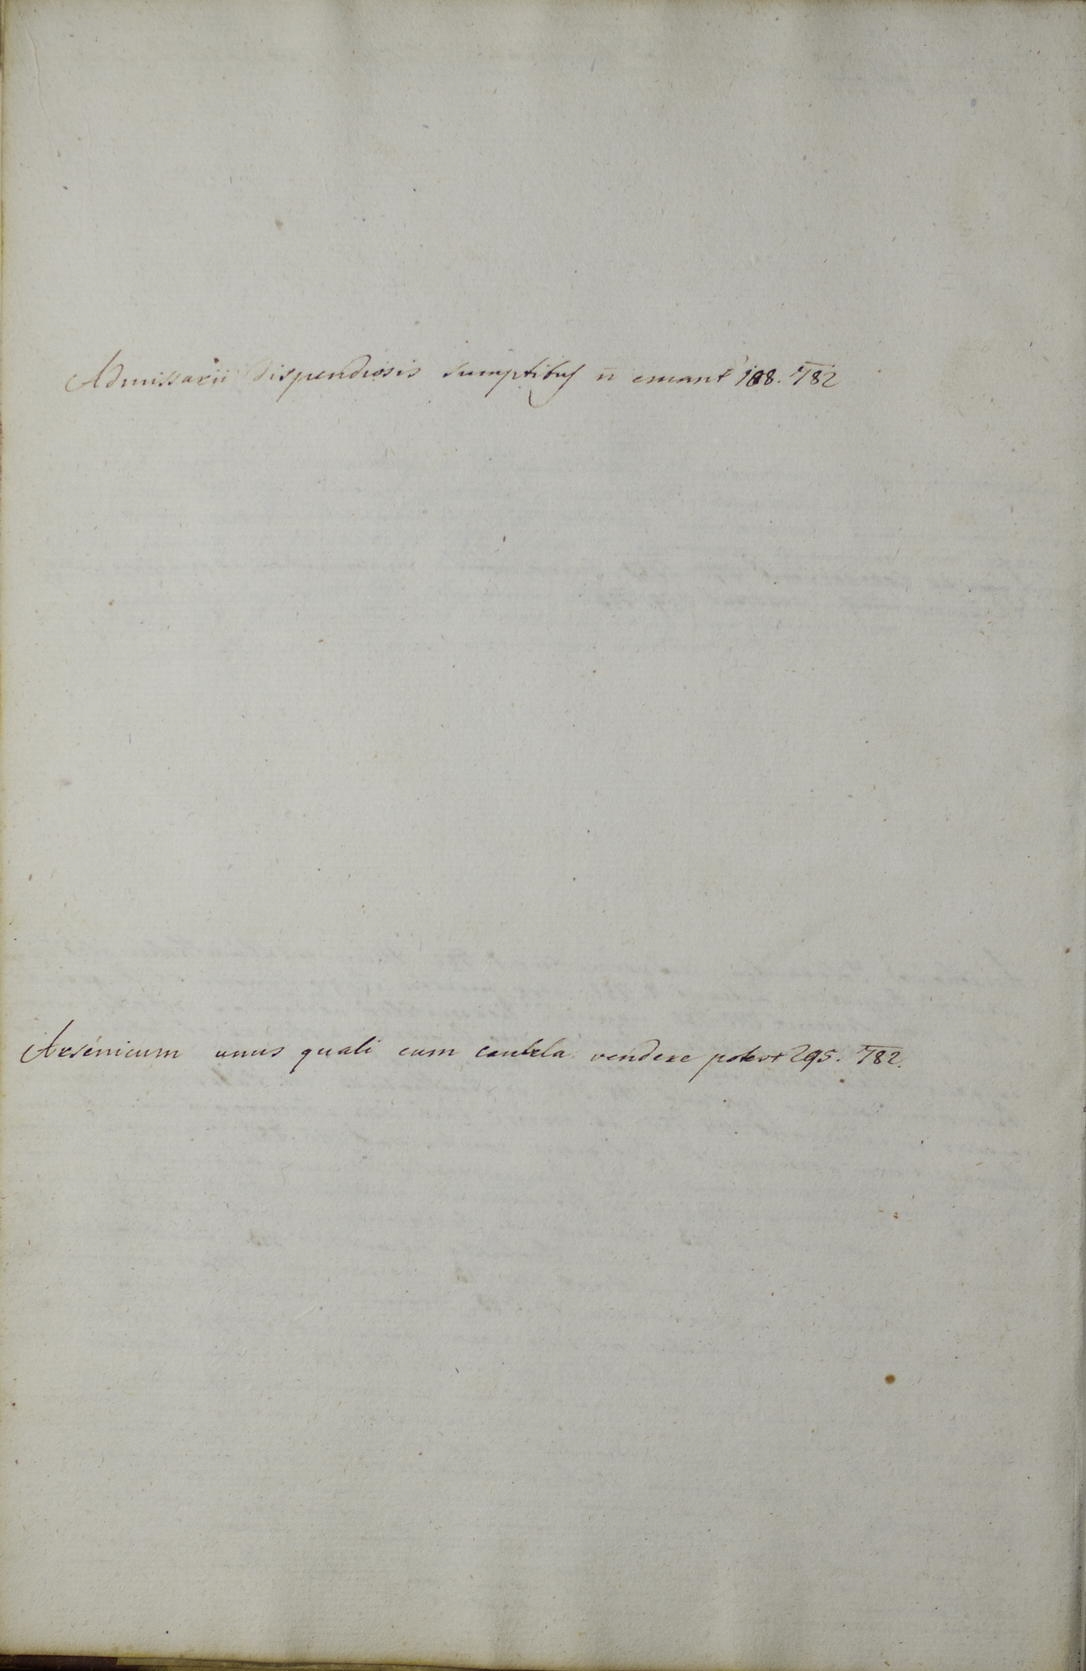 Admissarii dispendiosis sumptibus n̄ emant 188. 782
Arsenicum unus quali cum cautela vendere potest 295. 782.